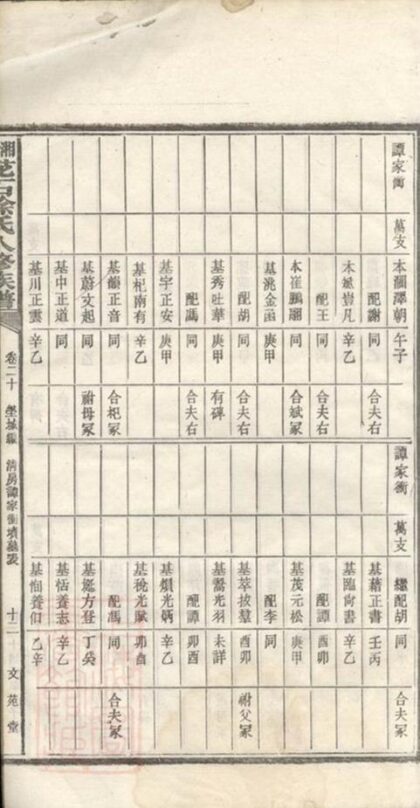 譚家衝
萬支
本瀰澤朝 午子
配謝 同 合夫右
本斌豈凡 辛乙
配王 同 合夫右
本崔鵬翮 同 合斌冢
基洮金函 庚甲
配胡 同 合夫右
基秀吐華 庚甲 有碑
配馮 同 合夫右
基宇正安 庚甲
基杞南有 辛乙
基韻正音 同 合杞冢
基蔚文起 同 祔母冢
基中正道 同
基川正雲 辛乙
譚家衝
萬支
繼配胡 同 合夫冢
基藉正書 壬丙
基臨尙書 辛乙
配譚 酉卯
基茂元松 庚甲
配李 同
基萃拔羣 酉卯 祔父冢
基鷟光羽 未詳
配譚 卯酉
基煩光炳 辛乙
基稅光賦 卯酉
配馮 同 合夫冢
基挻方登 丁癸
基恬養志 辛乙
基恂養伯 乙辛
卷二十
譚家衝墳墓表
十二
文苑堂